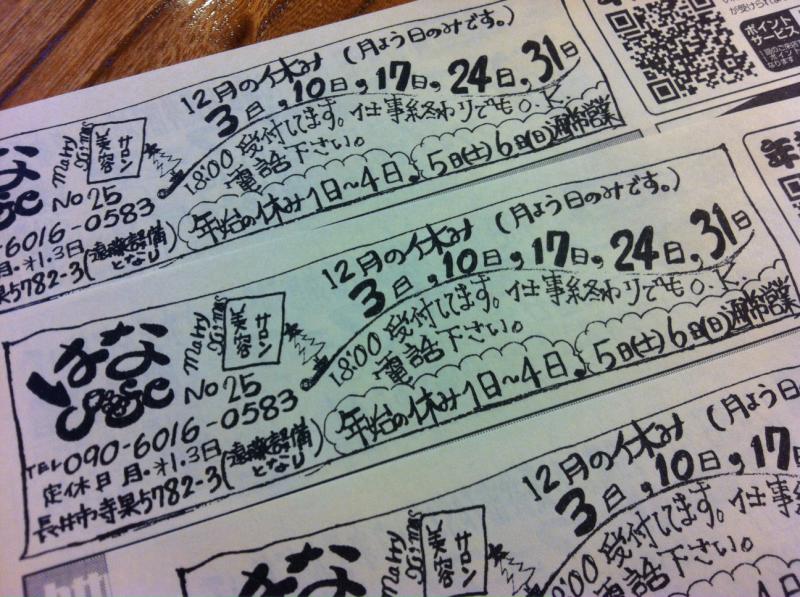 12月の休み (月よう日のみです。)
3日,10日,17日,24日,31日
18:00受付してます。仕事終わりでもO.K.
電話下さい。
年始の休み1日〜4日、5日(土)6日(日)通常営業
Marry
X'mas
美容
サロン
No 25
6016-0583
月・オ1.3日
5782-3(遠藤設備
となり)
が受けられま
ポイント
サービス
12月の休み (月よう日のみです。)
3日,10日,17日,24日,31日
18:00受付してます。仕事終わりでもO.K.
電話下さい。
年始の休み1日〜4日、5日(土)6日(日)通常営業
Marry
X'mas
美容
サロン
はな
No 25
TEL 090-6016-0583
定休日 月・オ1.3日
長井市寺泉5782-3(遠藤設備
となり)
12月の休み (月よう日
3日,10日,17
18:00受付してます。仕事
電話下さい。
Marry
X'mas
美容
サロン
はな
htt